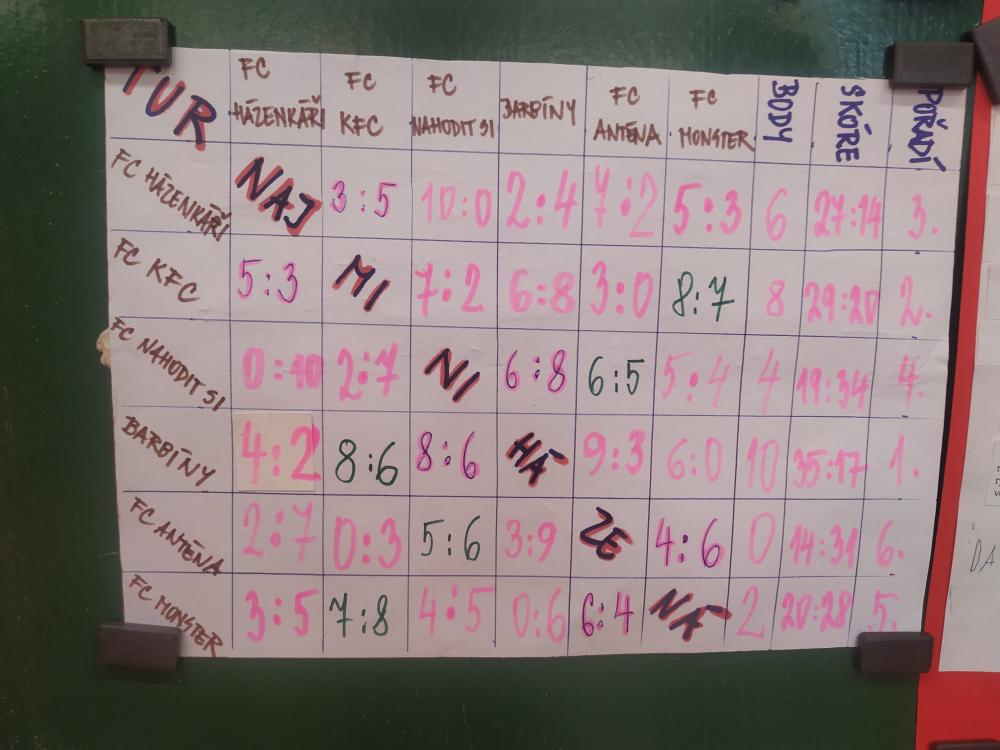 TUR FC HÁZENKÁŘI FC KFC FC NAHODIT SI BARBÍNY FC ANTÉNA FC MONSTER BODY SKÓRE POŘADÍ
FC HÁZENKÁŘI NAJ 3:5 10:0 2:4 7:2 5:3 6 27:14 3.
FC KFC 5:3 MI 7:2 6:8 3:0 8:7 8 29:20 2.
FC NAHODIT SI 0:10 2:7 NI 6:8 6:5 5:4 4 19:34 4.
BARBÍNY 4:2 8:6 8:6 HÁ 9:3 6:0 10 35:17 1.
FC ANTÉNA 2:7 0:3 5:6 3:9 ZE 4:6 0 14:31 6.
FC MONSTER 3:5 7:8 4:5 0:6 6:4 NÁ 2 20:28 5.